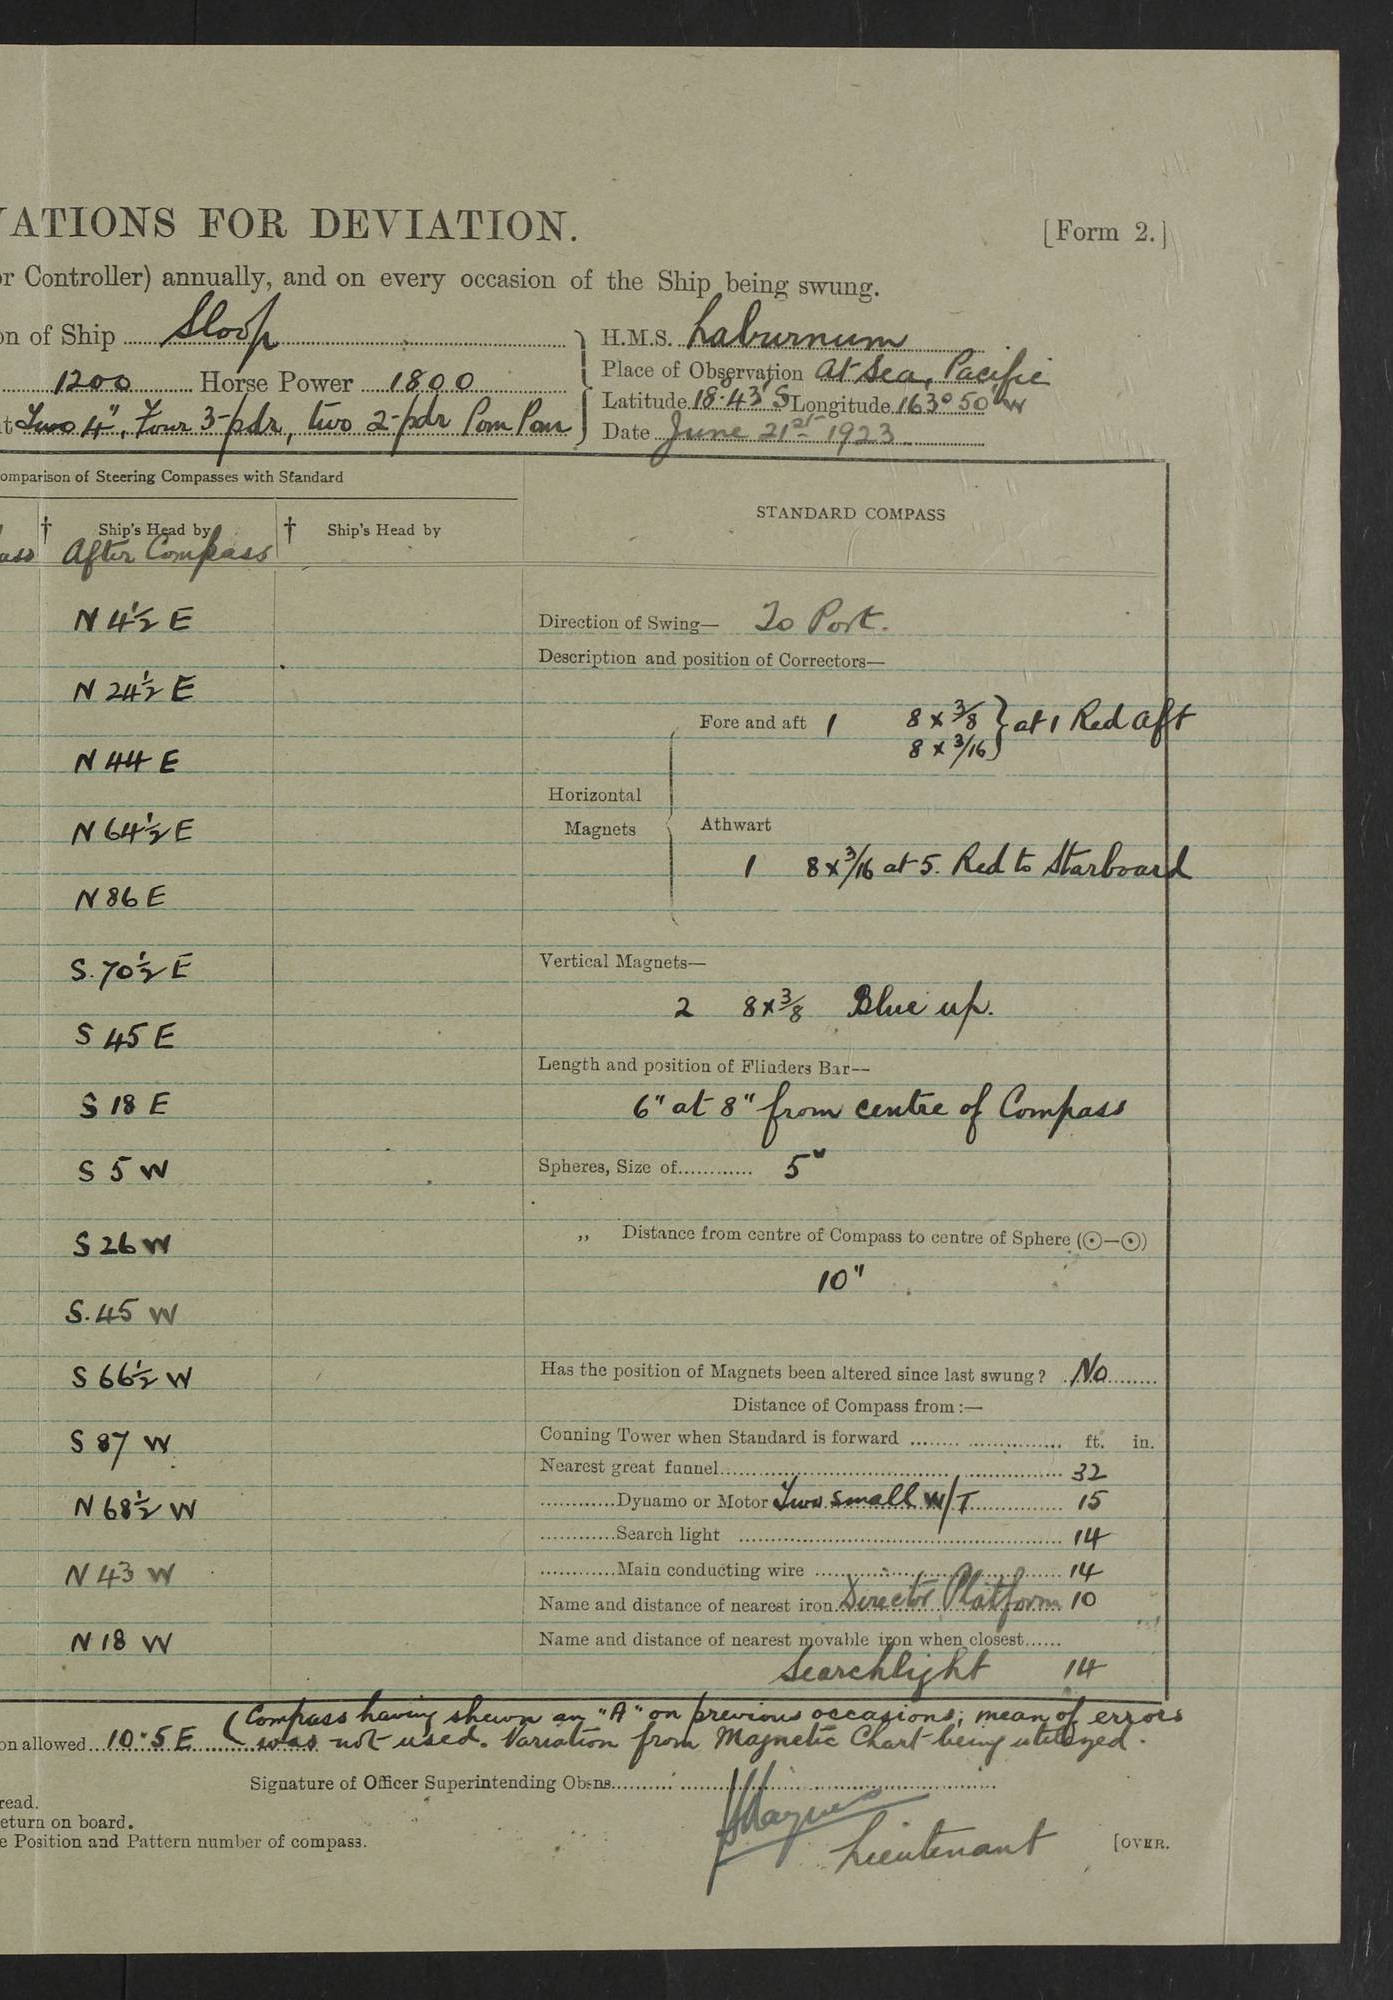 VATIONS FOR DEVIATION.
[Form 2.]
or Controller) annually, and on every occasion of the Ship being swung.
on of Ship Sloop
H.M.S. Laburnum
1200 Horse Power 1800
Place of Observation At Sea, Pacific
Latitude 18·43' S Longitude 163° 50' W
t Two 4", Four 3-pdr, two 2-pdr Pom Pom
Date June 21st 1923
omparison of Steering Compasses with Standard
STANDARD COMPASS
† Ship's Head by † Ship's Head by
ass After Compass
N 4½ E
Direction of Swing— To Port.
Description and position of Correctors—
N 24½ E
Fore and aft 1 8 x 3/8 } at 1 Red aft
8 x 3/16
N 44 E
Horizontal
Magnets
N 64½ E
Athwart
1 8 x 3/16 at 5. Red to Starboard
N 86 E
S. 70½ E
Vertical Magnets—
2 8 x 3/8 Blue up.
S 45 E
Length and position of Flinders Bar--
S 18 E
6" at 8" from centre of Compass
S 5 W
Spheres, Size of............ 5"
S 26 W
„ Distance from centre of Compass to centre of Sphere (⊙—⊙)
10"
S. 45 W
S 66½ W
Has the position of Magnets been altered since last swung? No
Distance of Compass from :—
S 87 W
Conning Tower when Standard is forward ........ ft. in.
Nearest great funnel 32
N 68½ W
............Dynamo or Motor Two small W/T 15
............Search light 14
N 43 W
............Main conducting wire 14
Name and distance of nearest iron Director Platform 10
N 18 W
Name and distance of nearest movable iron when closest......
Searchlight 14
(Compass having shewn an "A" on previous occasions, mean of errors
on allowed 10·5 E was not used. Variation from Magnetic Chart being utilized.
Signature of Officer Superintending Obsns.
read.
eturn on board.
e Position and Pattern number of compass.
Lieutenant
[OVER.